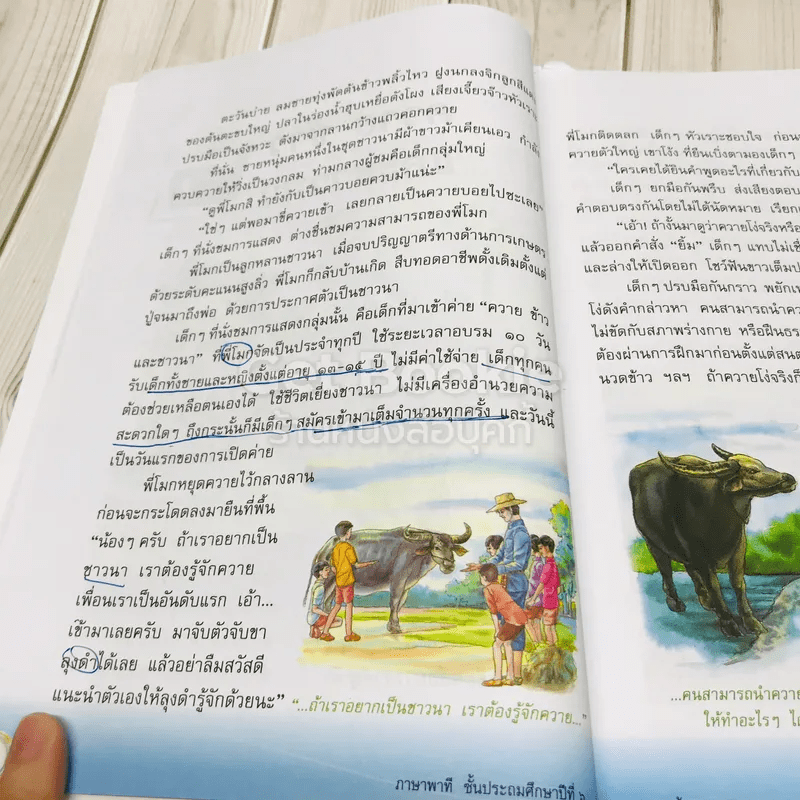 ตะวันบ่าย ลมชายทุ่งพัดต้นข้าวพลิ้วไหว ฝูงนกลงจิกลูกสีแดง
ของต้นตะขบใหญ่ ปลาในร่องน้ำฮุบเหยื่อดังโผง เสียงเจี๊ยวจ๊าวหัวเราะ
ปรบมือเป็นจังหวะ ดังมาจากลานกว้างแถวคอกควาย
ที่นั่น ชายหนุ่มคนหนึ่งในชุดชาวนามีผ้าขาวม้าเคียนเอว กำลัง
ควบควายให้วิ่งเป็นวงกลม ท่ามกลางผู้ชมคือเด็กกลุ่มใหญ่
“อู้พี่โมกสิ ทำยังกับเป็นคาวบอยควบม้าแน่ะ”
“ใช่ๆ แต่พอมาขี่ควายเข้า เลยกลายเป็นควายบอยไปซะเลย”
เด็กๆ ที่นั่งชมการแสดง ต่างชื่นชมความสามารถของพี่โมก
พี่โมกเป็นลูกหลานชาวนา เมื่อจบปริญญาตรีทางด้านการเกษตร
ด้วยระดับคะแนนสูงลิ่ว พี่โมกก็กลับบ้านเกิด สืบทอดอาชีพดั้งเดิมตั้งแต่
ปู่จนมาถึงพ่อ ด้วยการประกาศตัวเป็นชาวนา
เด็กๆ ที่นั่งชมการแสดงกลุ่มนั้น คือเด็กที่มาเข้าค่าย “ควาย ข้าว
และชาวนา” ที่พี่โมกจัดเป็นประจำทุกปี ใช้ระยะเวลาอบรม ๑๐ วัน
รับเด็กทั้งชายและหญิงตั้งแต่อายุ ๑๓-๑๕ ปี ไม่มีค่าใช้จ่าย เด็กทุกคน
ต้องช่วยเหลือตนเองได้ ใช้ชีวิตเยี่ยงชาวนา ไม่มีเครื่องอำนวยความ
สะดวกใดๆ ถึงกระนั้นก็มีเด็กๆ สมัครเข้ามาเต็มจำนวนทุกครั้ง และวันนี้
เป็นวันแรกของการเปิดค่าย
พี่โมกหยุดควายไว้กลางลาน
ก่อนจะกระโดดลงมายืนที่พื้น
“น้องๆ ครับ ถ้าเราอยากเป็น
ชาวนา เราต้องรู้จักควาย
เพื่อนเราเป็นอันดับแรก เอ้า...
เข้ามาเลยครับ มาจับตัวจับขา
ลุงดำได้เลย แล้วอย่าลืมสวัสดี
แนะนำตัวเองให้ลุงดำรู้จักด้วยนะ”
“...ถ้าเราอยากเป็นชาวนา เราต้องรู้จักควาย...”
ภาษาพาที ชั้นประถมศึกษาปีที่ ๖
พี่โมกติดตลก เด็กๆ หัวเราะชอบใจ ก่อน
ควายตัวใหญ่ เขาโง้ง ที่ยืนเบิ่งตามองเด็กๆ
“ใครเคยได้ยินคำพูดอะไรที่เกี่ยวกับ
เด็กๆ ยกมือกันพรึบ ส่งเสียงตอบ
คำตอบตรงกันโดยไม่ได้นัดหมาย เรียก
“เอ้า! ถ้างั้นมาดูว่าควายโง่จริงหรือ
แล้วออกคำสั่ง “ยิ้ม” เด็กๆ แทบไม่เชื่อ
และล่างให้เปิดออก โชว์ฟันขาวเต็ม
เด็กๆ ปรบมือกันกราว พยัก
โง่ดังคำกล่าวหา คนสามารถนำควาย
ไม่ขัดกับสภาพร่างกาย หรือฝืนธรรม
ต้องผ่านการฝึกมาก่อนตั้งแต่สน
นวดข้าว ฯลฯ ถ้าควายโง่จริงก็
...คนสามารถนำควาย
ให้ทำอะไรๆ ได้
Get Bookie
ร้านหนังสือบุ๊คกี้